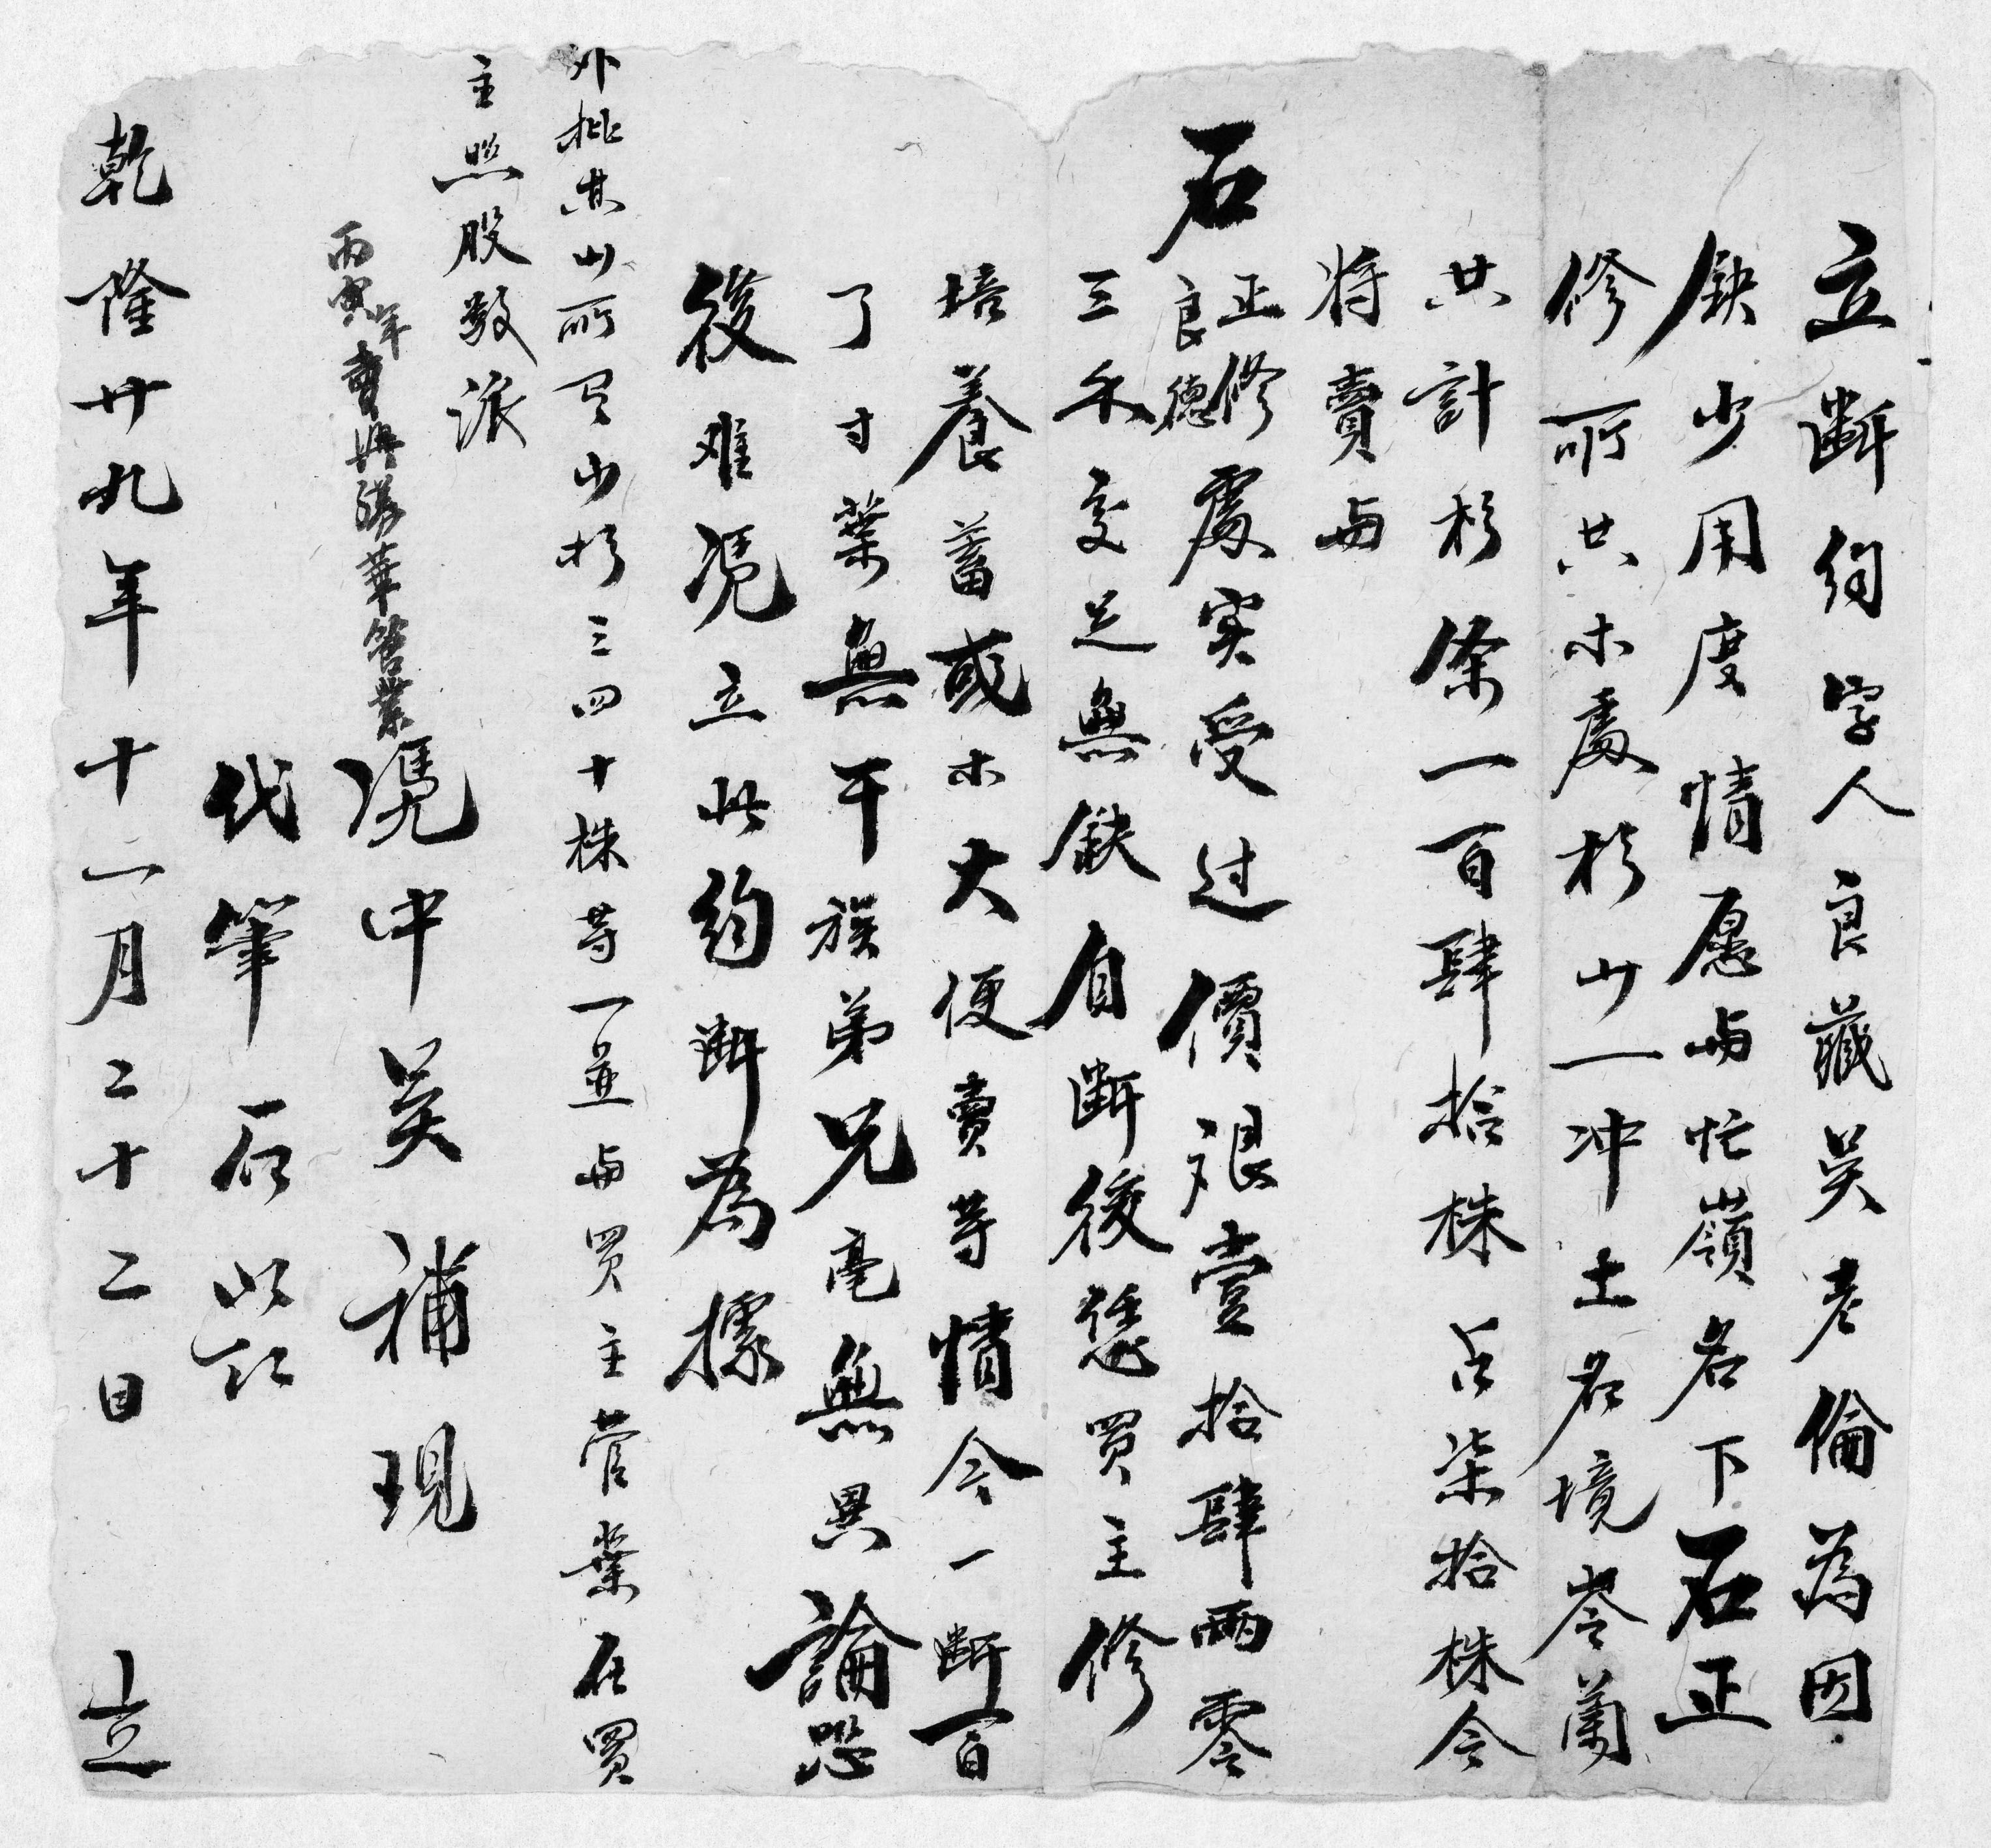 立断約字人良藏吴老倫為因
缺少用度情愿与忙嶺名下石正
修所共木處杉山一冲土名境岑蘭
共計杉条一百肆拾株占柒拾株今
将賣与
石正修良德處实受过價艮壹拾肆兩零
三禾交足無缺自断後凭買主修
培養蓄或木大便賣等情今一断百
了寸葉無干族弟兄毫無異論恐
後难凭立此約断為據
外批共山所買山杉三四十株等一並与買主管業在買
主照股数派
丙寅年賣與勝華管業
凭中吴補現
代筆石
乾隆廿九年十二月二十二日 立